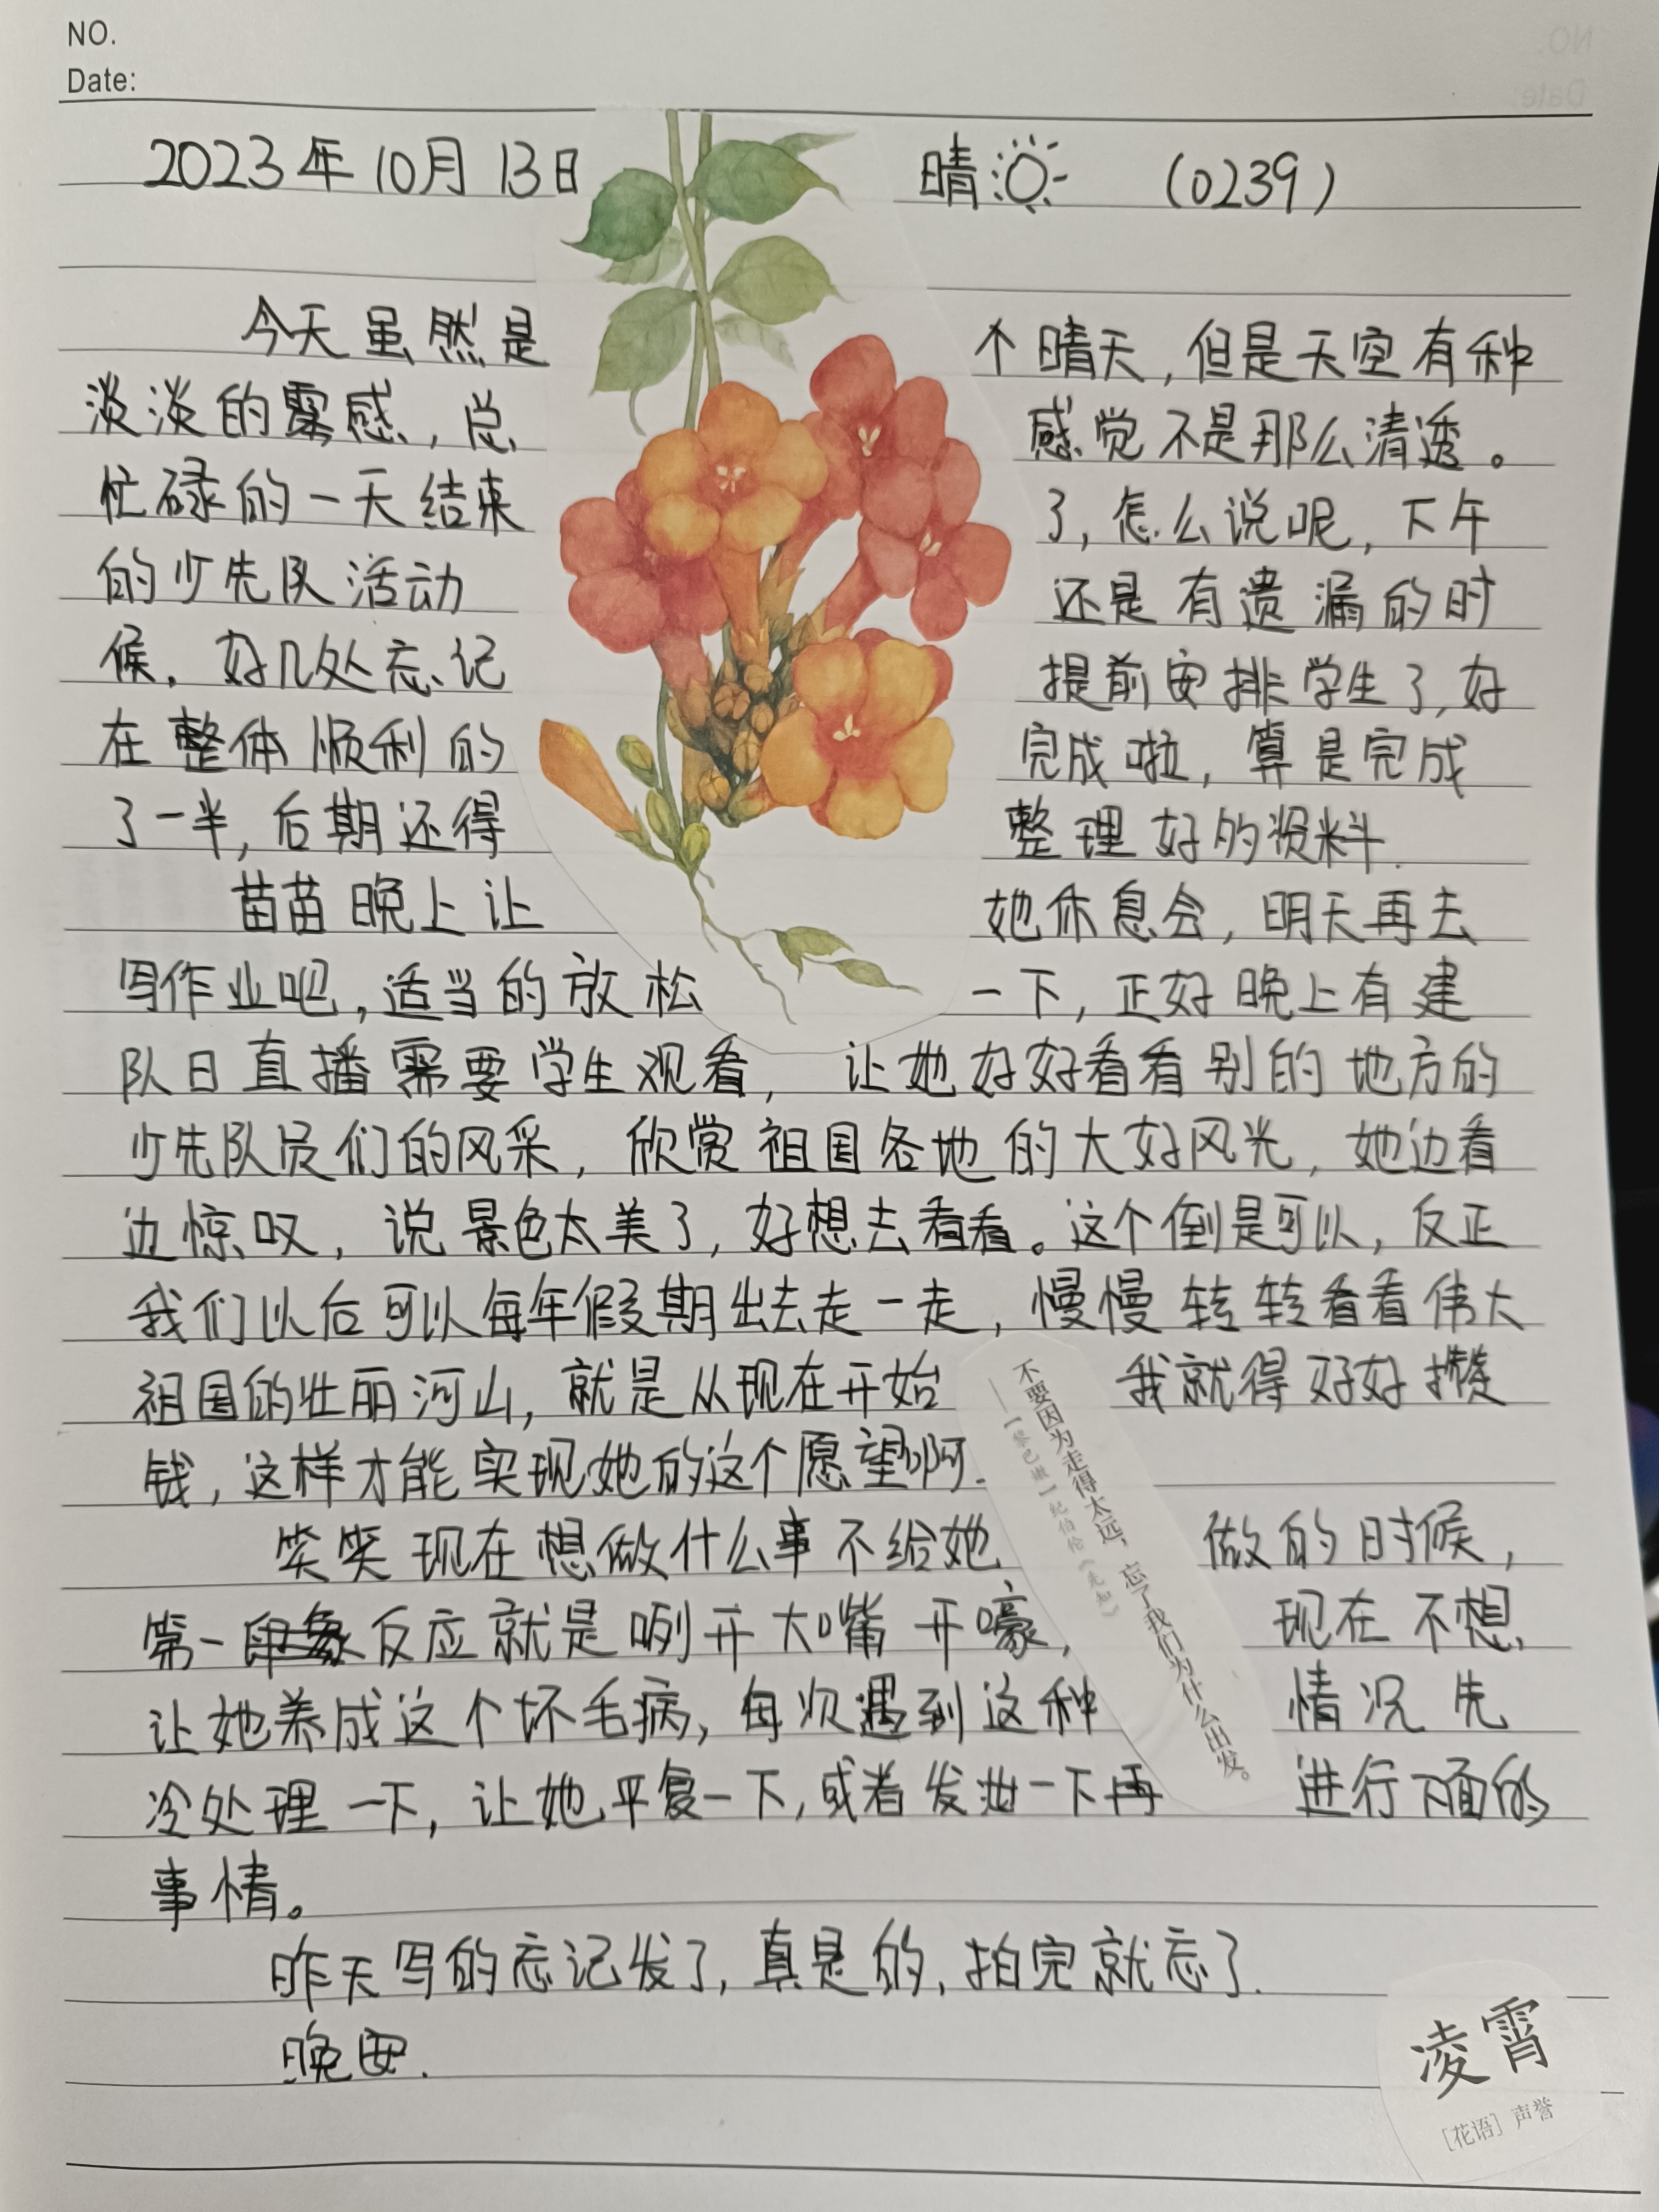 NO.
Date:
2023年10月13日 晴 (0239)
今天虽然是个晴天,但是天空有种
淡淡的霾感,总感觉不是那么清透。
忙碌的一天结束了,怎么说呢,下午
的少先队活动还是有遗漏的时
候。好几处忘记提前安排学生了,好
在整体顺利的完成啦,算是完成
了一半,后期还得整理好的资料.
苗苗晚上让她休息会,明天再去
写作业吧,适当的放松一下,正好晚上有建
队日直播需要学生观看,让她好好看看别的地方的
少先队员们的风采,欣赏祖国各地的大好风光,她边看
边惊叹,说景色太美了,好想去看看。这个倒是可以,反正
我们以后可以每年假期出去走一走,慢慢转转看看伟大
祖国的壮丽河山,就是从现在开始我就得好好攒
钱,这样才能实现她的这个愿望啊.
笑笑现在想做什么事不给她做的时候,
第一印象反应就是咧开大嘴开嚎,现在不想
让她养成这个坏毛病,每次遇到这种情况先
冷处理一下,让她平复一下,或者发泄一下再进行下面的
事情。
昨天写的忘记发了,真是的,拍完就忘了.
晚安.
不要因为走得太远,忘了我们为什么出发。
——[黎巴嫩]纪伯伦《先知》
凌霄
[花语]声誉